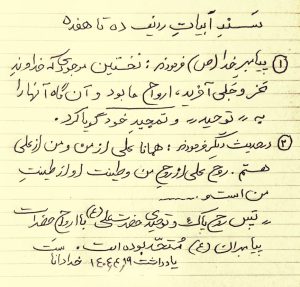 سندِ ابیاتِ ردیف ده تا هفده
۱ پیامبر خدا (ص) فرمودند: نخستین موجودی که خداوند
عزّ و جلّ آفرید، ارواح ما بود و آن گاه آنها را
به توحید و تمجید خود گویا کرد.
۲ در حدیث دیگر فرمودند: همانا علی از من و من از علی
هستم. روح علی از روح من و طینت او از طینت
من است
پس روح پاک و توحیدی حضرت علی (ع) با ارواح حضرات
پیامبران (ع) متّحد بوده است.
یادداشت ۱۴۰۴٫۴٫۱۹